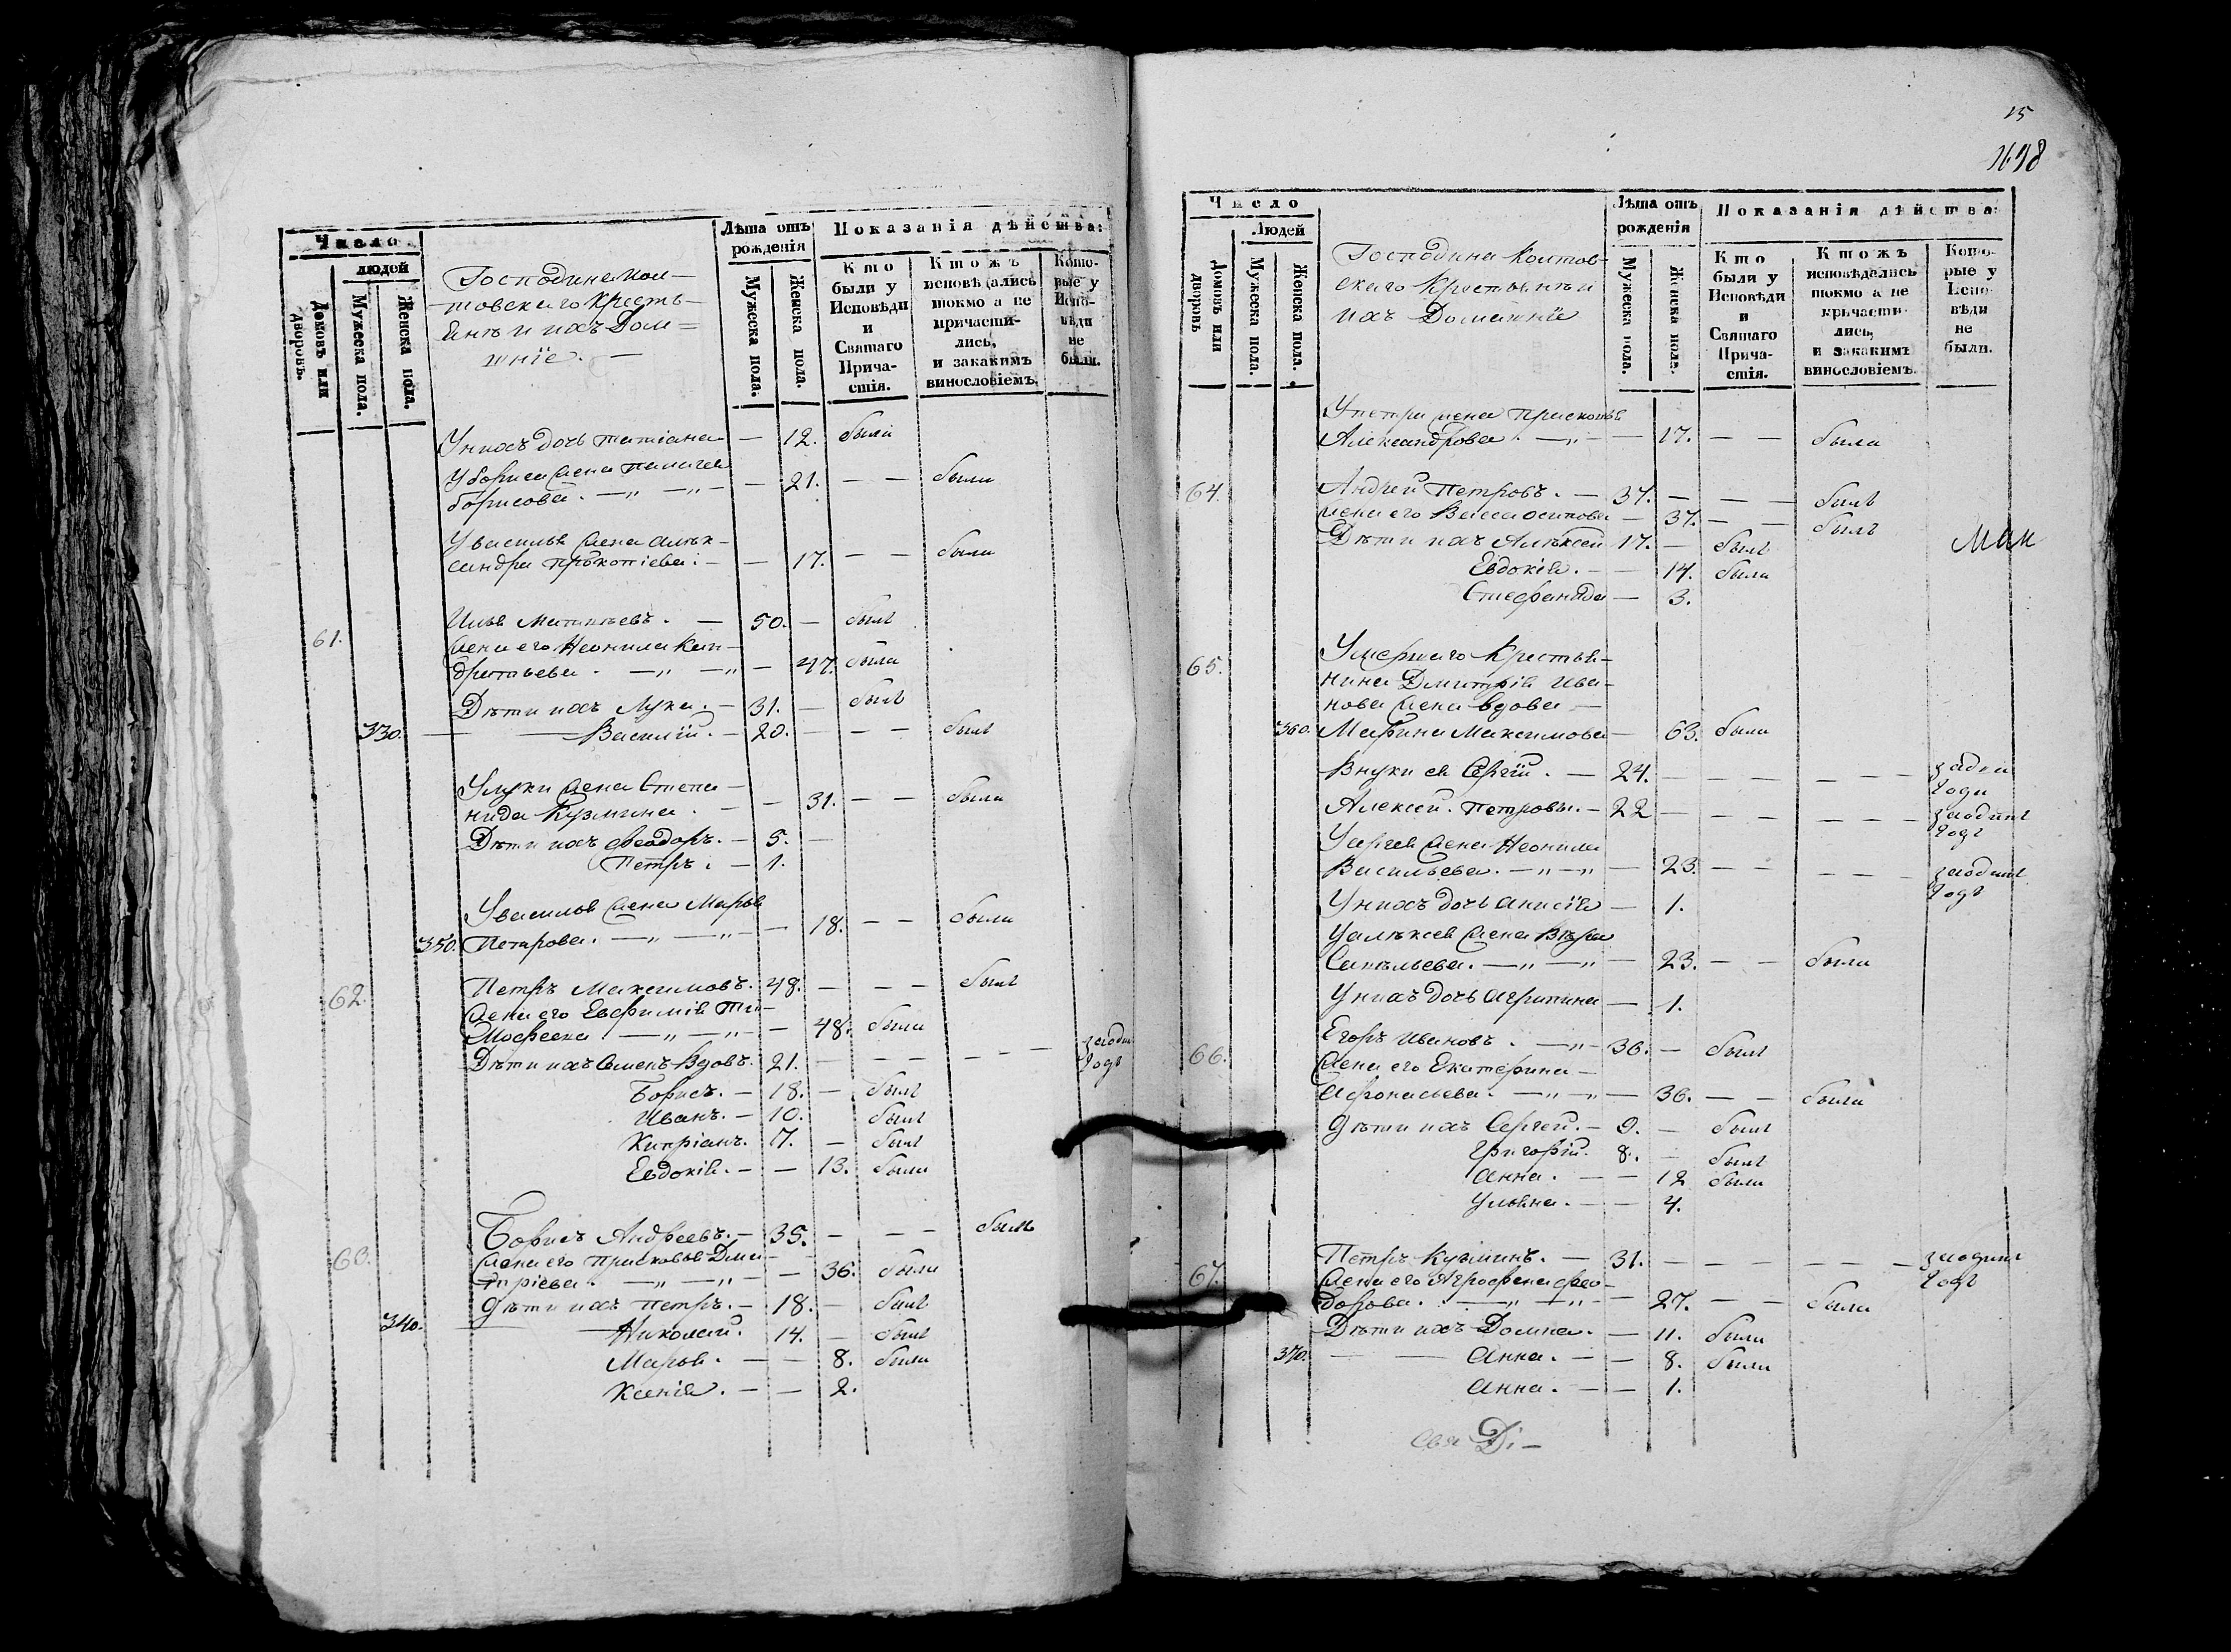 Число
людей
Домовъ или дворовъ.
Мужеска пола.
Женска пола.
Господина Кол-
товскаго Кресть-
янѣ и ихъ Дом=
шніе. —
Лѣта отъ рожденія
Мужеска пола.
Женска пола.
Показанія дѣйства:
Кто были у Исповѣди и Святаго Прича-стія.
Ктожъ исповѣдались токмо а не причасти-лись, и закакимъ винословіемъ.
Кото-рые у Испо-вѣди не были.
У нихъ дочь Татіана — 12. была
У бориса жена Пелагея
борисова. — „ — „ — — 21. — — была
У василья жена алек-
сандра Прокопіева. — — 17. — — была
61. Илья Матвѣевъ. — 50. — былъ
жена его Неонила Кон-
дратьева. — „ — „ — 47. была
Дѣти ихъ Лука. — 31. — былъ
330. — — Василій. — 20. — — — былъ
У луки жена Степа-
нида Кузмина. — — 31. — — была
Дѣти ихъ Феодоръ. — 5. —
Петръ. — 1.
У василья жена Марья
350. Петрова. — „ — „ — — 18. — — была
62. Петръ Максимовъ. 48. — — — былъ
жена его Евфимія Ти-
мофеева. — „ — „ — — 48. была
Дѣти ихъ Семенъ Вдовъ. 21. — — — — — — заодин
годъ
Борисъ. — 18. — былъ
Иванъ. — 10. былъ
Кипріанъ. 7. — былъ
Евдокія. — — 13. была
63. Борисъ Андреевъ. — 35. — — — былъ
жена его Прасковья Дми-
тріева. — „ — „ — — 36. была
Дѣти ихъ Петръ. — 18. — былъ
340. — Николай. 14. — былъ
Марья. — — 8. была
Ксенія. — — 2.
15
1648
Число
Людей
Домовъ или дворовъ
Мужеска пола.
Женска пола.
Господина Колтов-
скаго Крестьянѣ и
ихъ Домашніе
Лѣта отъ рожденія
Мужеска пола.
Женска пола.
Показанія дѣйства:
Кто были у Исповѣди и Святаго Прича-стія.
Ктожъ исповѣдались токмо а не причасти-лись, и закакимъ винословіемъ.
Кото-рые у Испо-вѣди не были.
У петра жена Прасковья
Александрова. — „ — — 17. — — была
64. Андрей Петровъ. — 37. — — — былъ
жена его Васса осипова — 37. — — былъ
Дѣти ихъ Алексѣй 17. — былъ
Евдокія. — — 14. была
Стефанида — 3.
65. Умершаго Крестья-
нина Дмитрія Ива-
нова жена вдова —
360. Марина Максимова — 63. была
Внуки ея Сергій. — 24. — — — — — —
года
Алексѣй. Петровы. — 22 — — — — — — заодинъ
годъ
У сергея жена Неонила
Васильева. — „ — „ — 23. — — — — — заодинъ
годъ
У нихъ дочь Анисія — 1.
У алексея жена Вѣра
Савельева. — „ — „ — 23. — — была
У нихъ дочь Агрипина — 1.
66. Егоръ Ивановъ. — „ — 36. — былъ
жена его Екатерина —
Афонасьева. — „ — „ — 36. — — была
Дѣти ихъ Сергей. — 9. — былъ
Григорій. 8. — былъ
Анна. — — 12 была
Ульяна. — — 4.
67. Петръ Кузминъ. — 31. — — — — — — заодинъ
годъ
жена его Агрофена Фео-
дорова. — „ — „ — 27. — — была
Дѣти ихъ Домна. — 11. была
370. — — Анна. — — 8. была
Анна. — — 1.